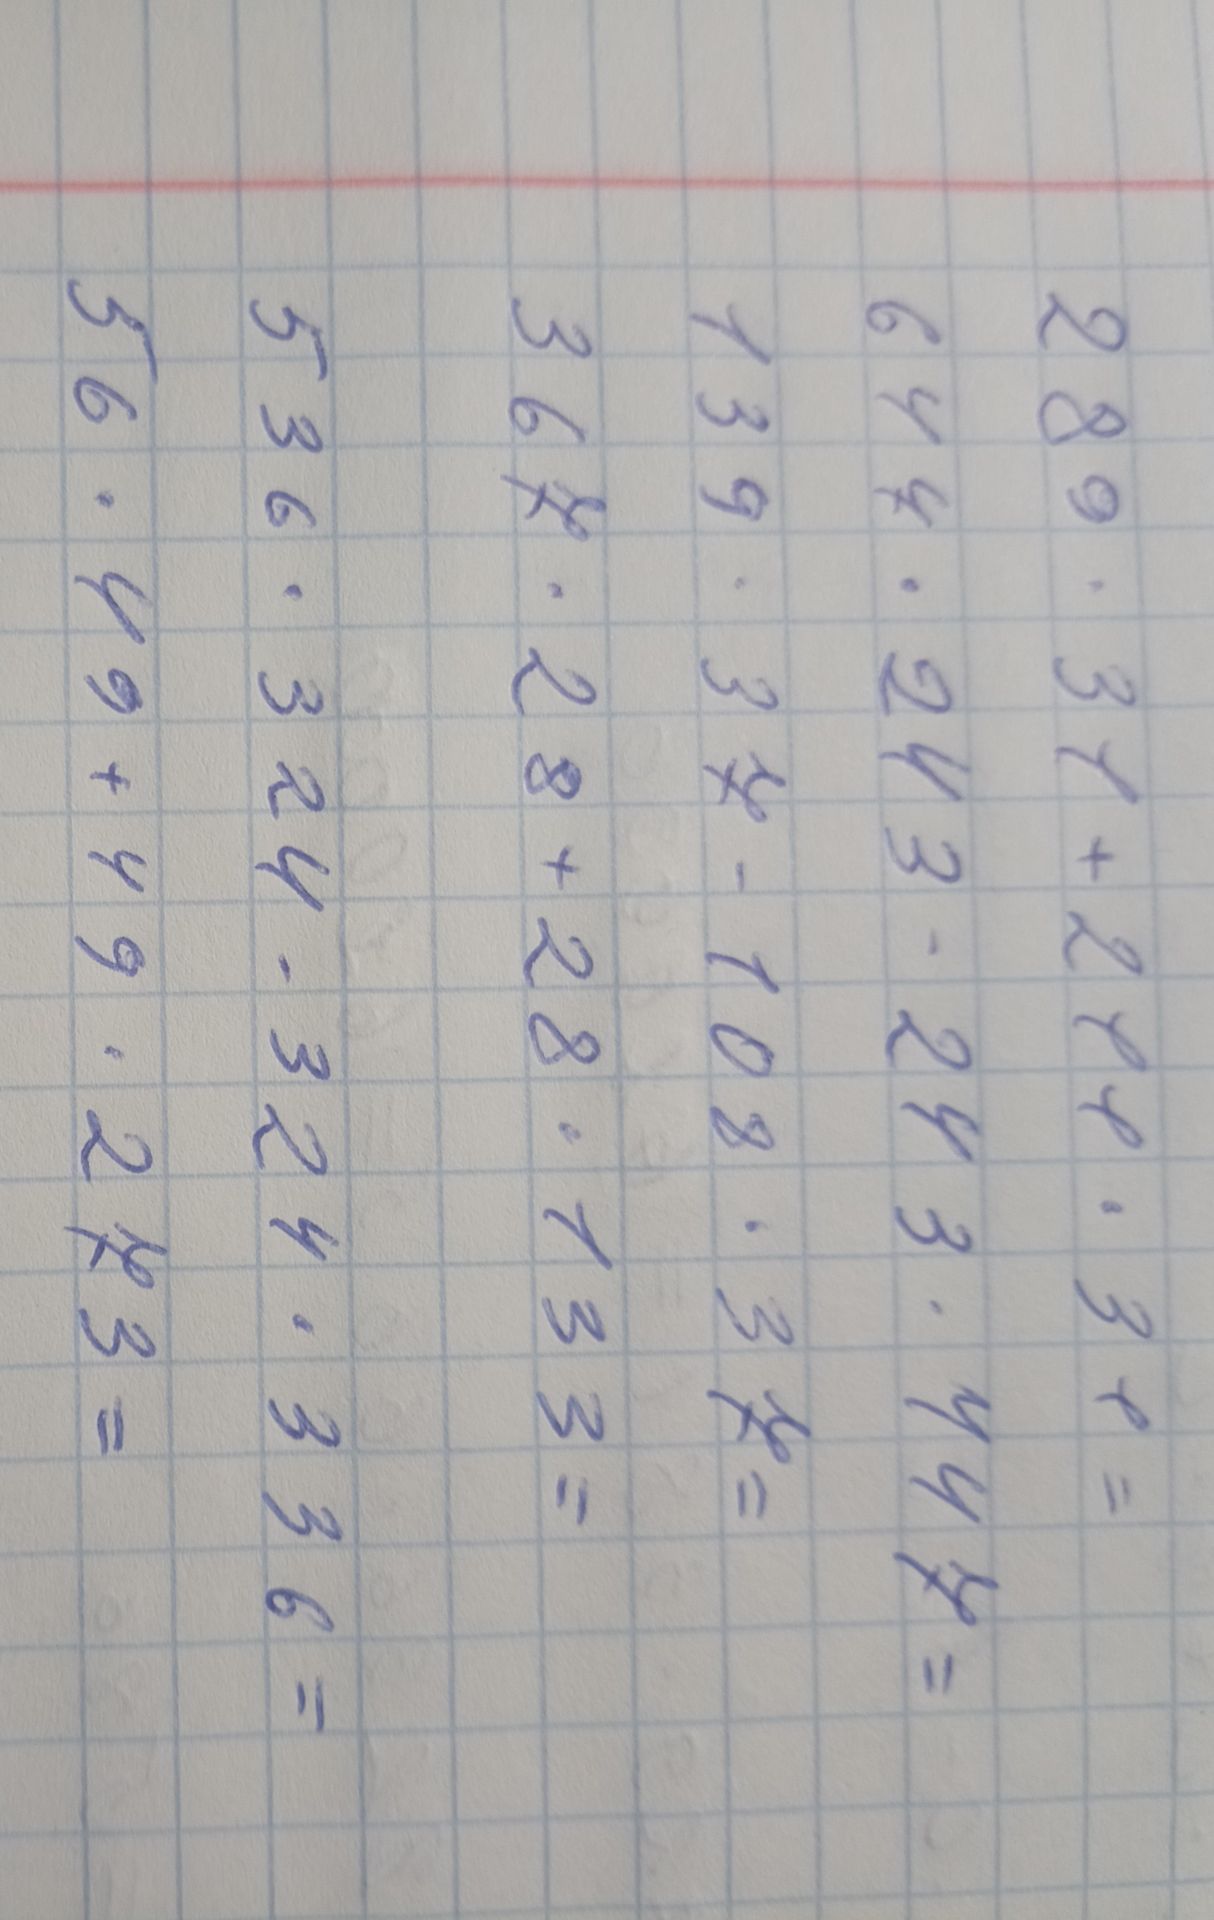 289 · 31 + 211 · 31 =
647 · 243 - 243 · 447 =
139 · 37 - 108 · 37 =
367 · 28 + 28 · 133 =
536 · 324 - 324 · 336 =
56 · 49 + 49 · 273 =